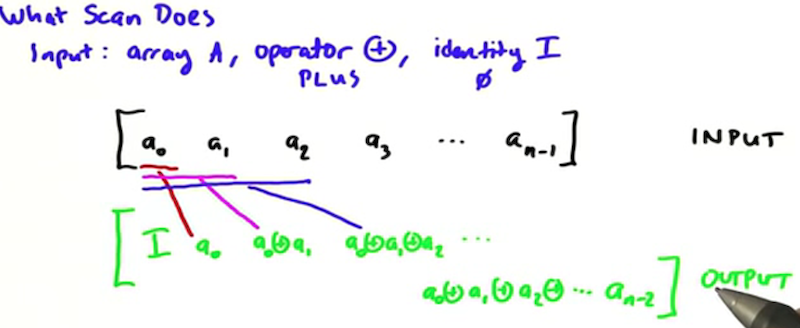 What Scan Does
Input: array A, operator ⊕, identity I
PLUS ∅
[a₀ a₁ a₂ a₃ ... aₙ₋₁] INPUT
[I a₀ a₀⊕a₁ a₀⊕a₁⊕a₂ ...
a₀⊕a₁⊕a₂⊕...aₙ₋₂] OUTPUT